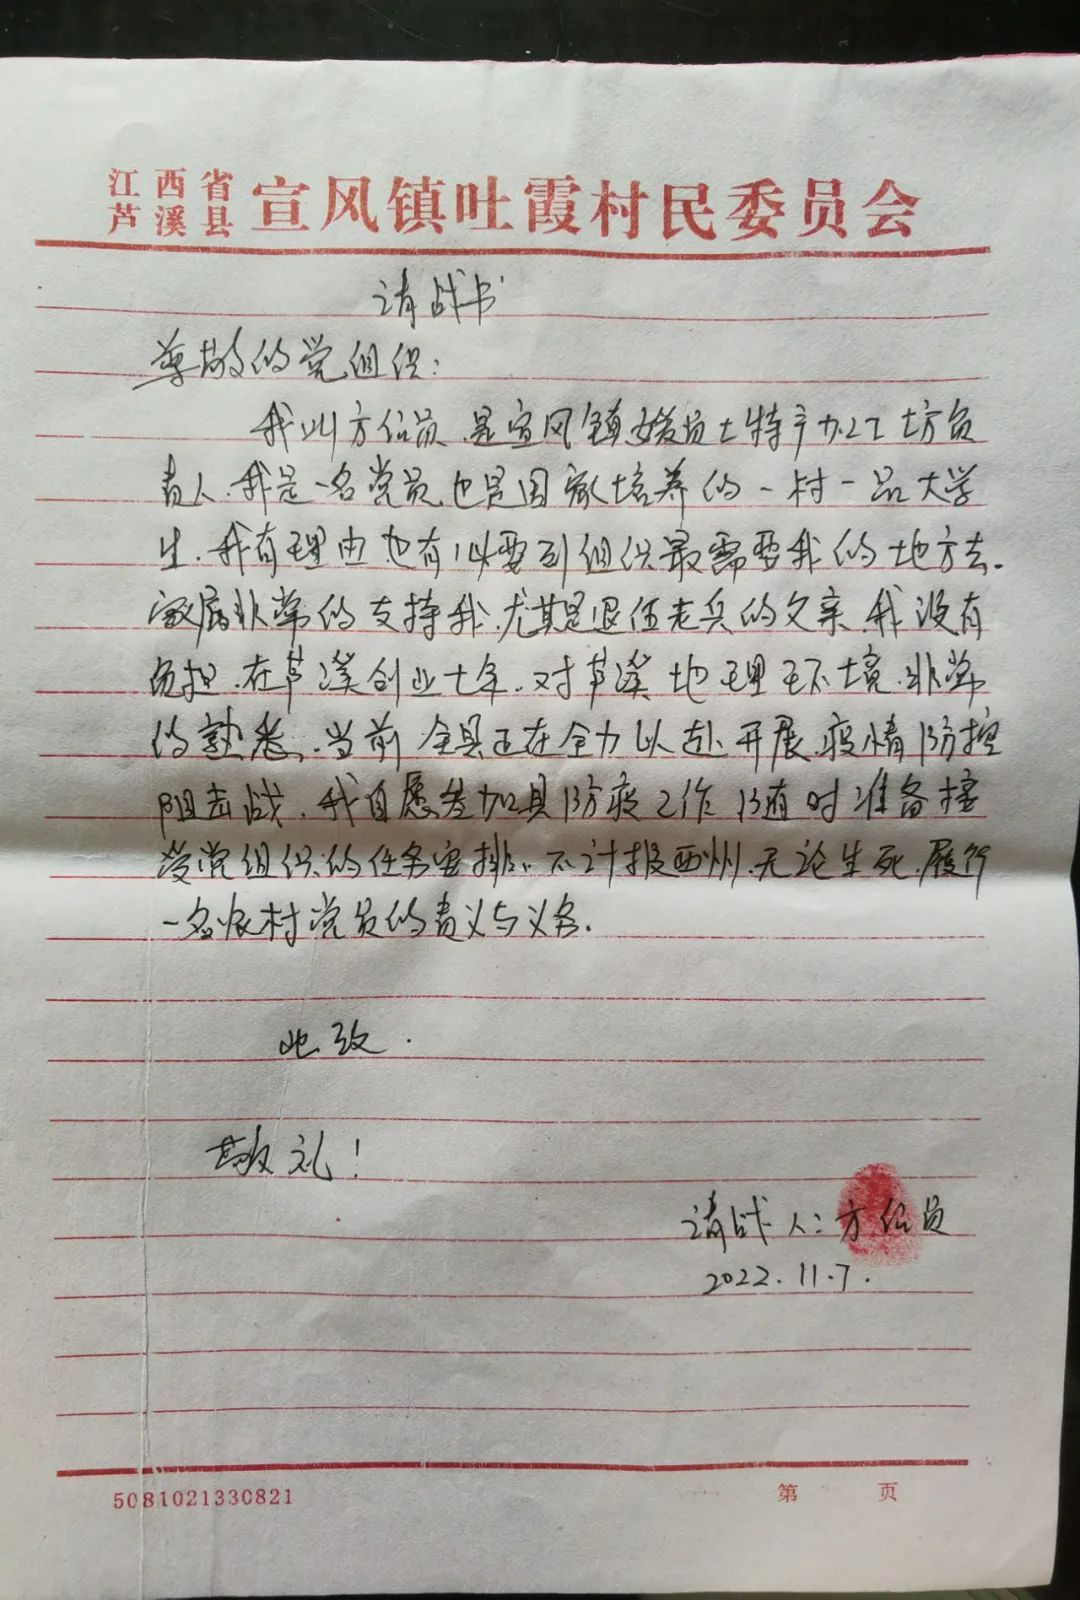 江西省
芦溪县 宣风镇吐霞村民委员会
请战书
尊敬的党组织:
我叫方绍员,是宣风镇媛员土特产加工坊负
责人,我是一名党员,也是国家培养的一村一品大学
生,我有理由也有必要到组织最需要我的地方去.
家属非常的支持我,尤其是退伍老兵的父亲,我没有
负担,在芦溪创业七年,对芦溪地理环境,非常
的熟悉,当前全县正在全力以赴开展疫情防控
阻击战,我自愿参加县防疫工作,随时准备接
受党组织的任务安排,不计报酬,无论生死,履行
一名农村党员的责义与义务.
此致.
敬礼!
请战人:方绍员
2022.11.7.
5081021330821
第 页